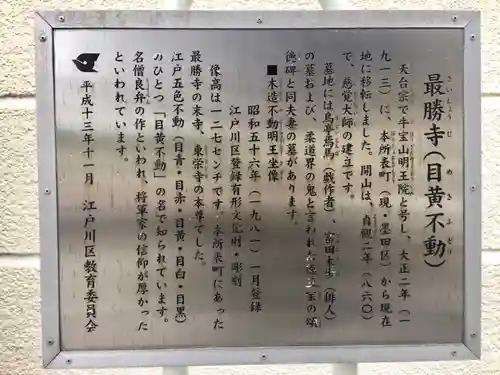 さいしょうじ めきふどう
最勝寺(目黄不動)
天台宗で牛宝山明王院と号し、大正二年(一
九一三)に、本所表町(現・墨田区)から現在
地に移転しました。開山は、貞観二年(八六〇)
で、慈覚大師の建立です。
墓地には烏亭焉馬(戯作者)、富田木歩(俳人)
の墓および、柔道界の鬼と言われた
の頌
徳碑と同夫妻の墓があります。
■木造不動明王坐像
昭和五十六年(一九八一)一月登録
江戸川区登録有形文化財・彫刻
像高は一二七センチです。本所表町にあった
最勝寺の末寺、東栄寺の本尊でした。
江戸五色不動(目青・目赤・目黄・目白・目黒)
のひとつ「目黄不動」の名で知られています。
名僧良弁の作といわれ、将軍家の信仰が厚かった
といわれています。
平成十三年十一月 江戸川区教育委員会